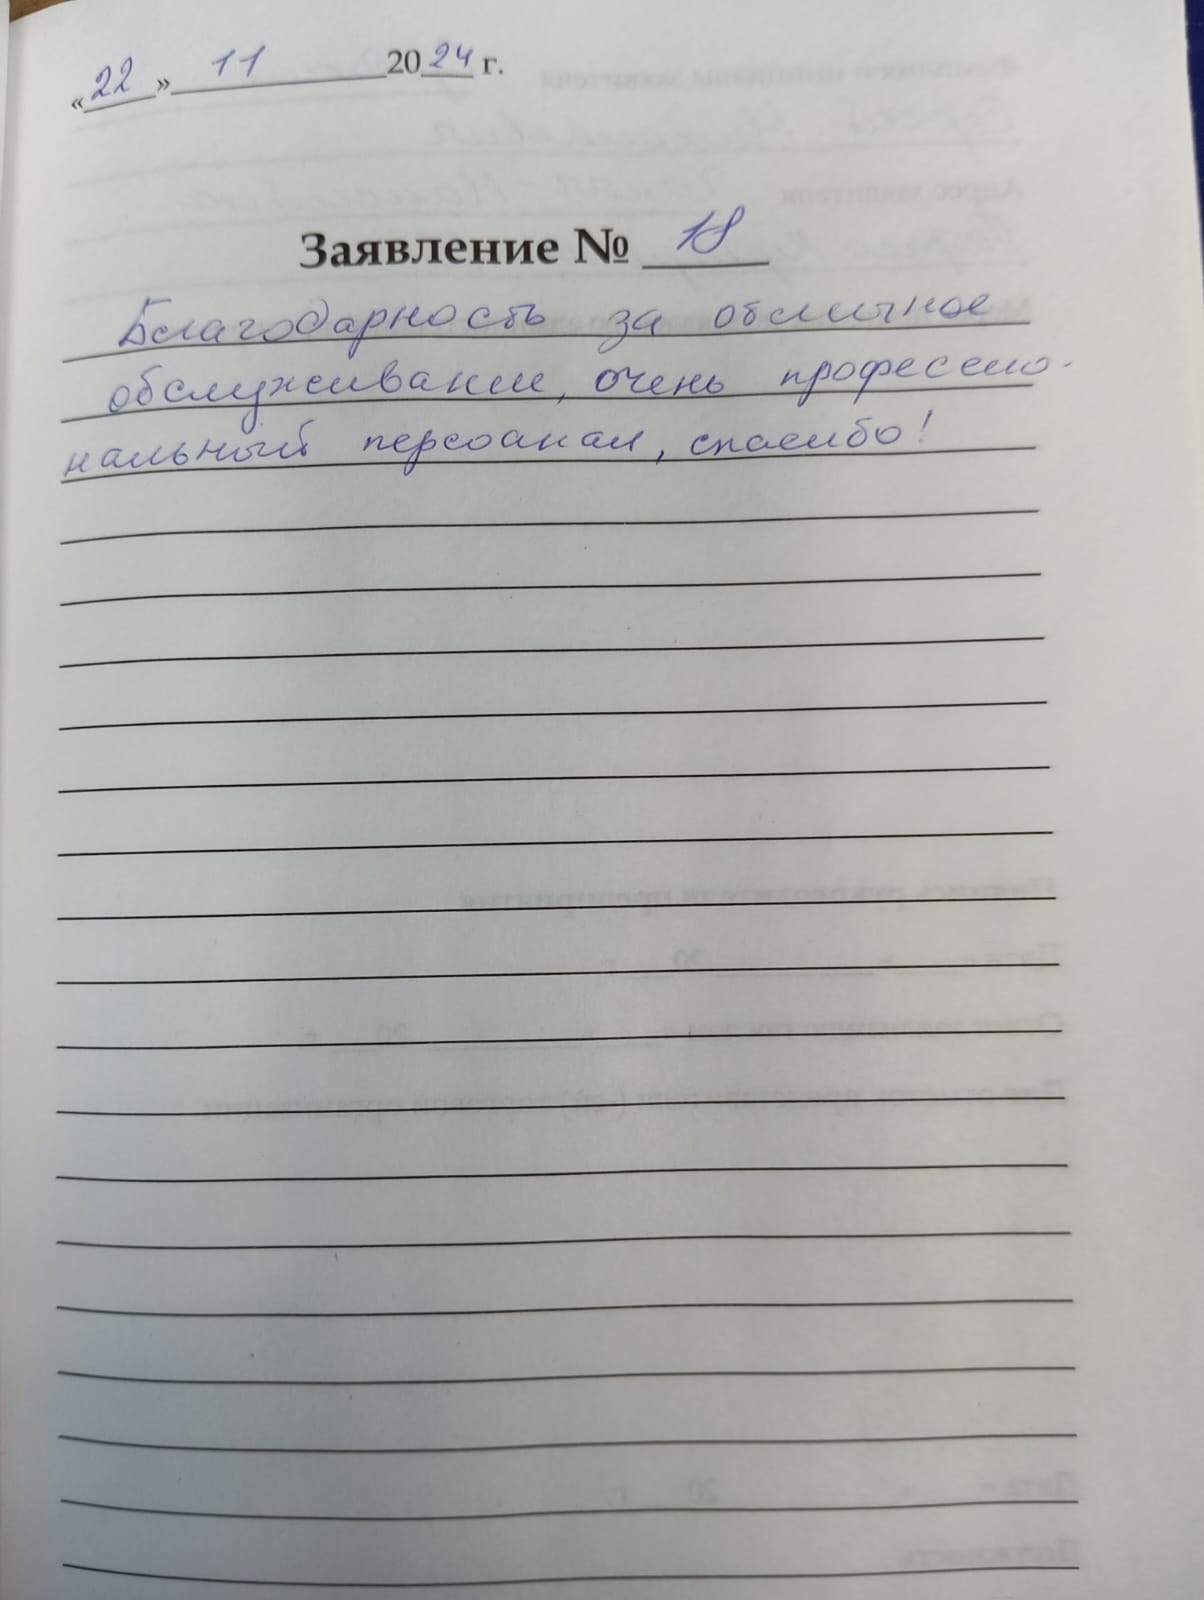 «22» 11 2024 г.
Заявление № 18
Благодарность за отличное
обслуживание, очень професcио-
нальный персоанал, спасибо!